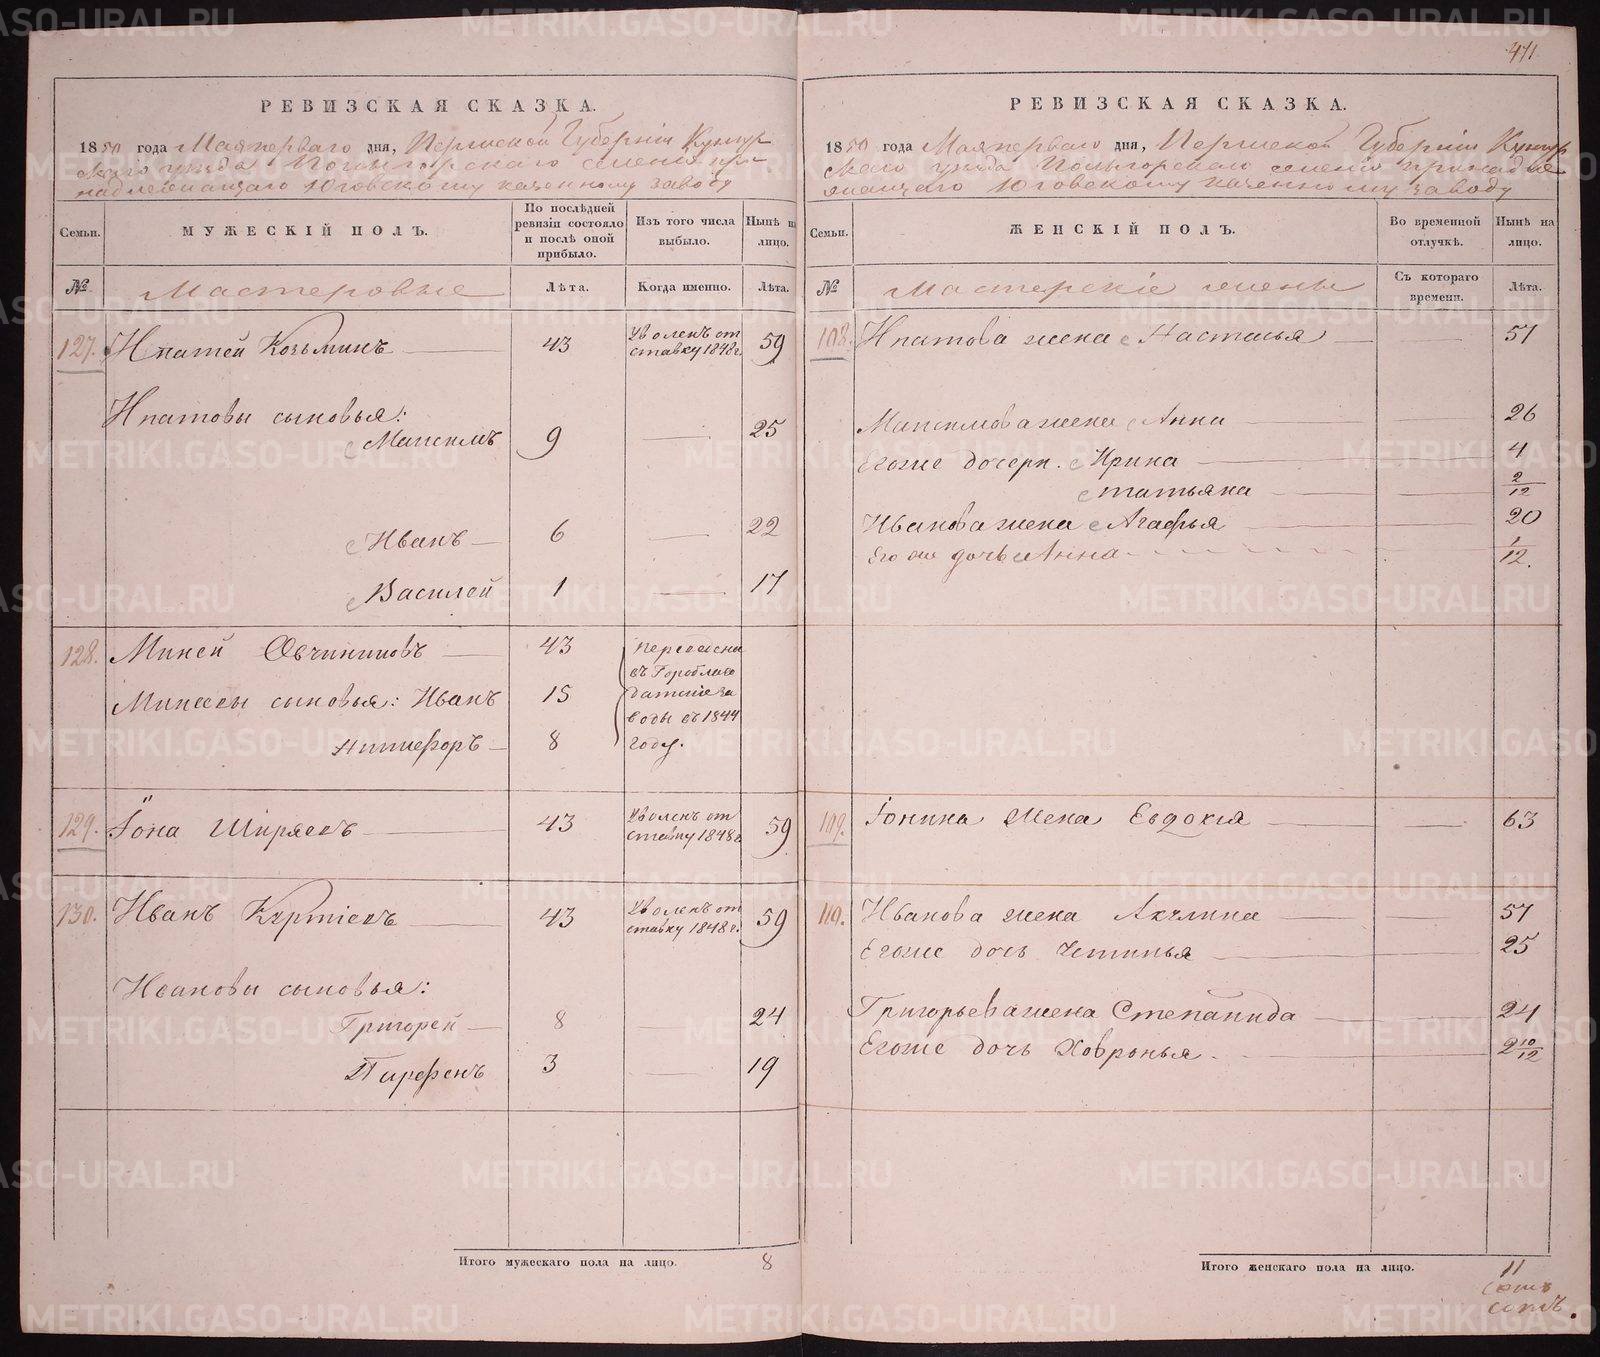 471
РЕВИЗСКАЯ СКАЗКА.
1850 года Маяперваго дня, Пермской Губерніи Кунгур
скаго уѣзда селенія при-
надлежащаго Юговскому казенному заводу
Семьи.
МУЖЕСКІЙ ПОЛЪ.
По послѣдней ревизіи состояло и послѣ оной прибыло.
Изъ того числа выбыло.
Нынѣ на лицо.
№
Мастеровые
Лѣта.
Когда именно.
Лѣта.
127. Ипатей Козьминъ 43 Уволенъ от ставку 1848 г. 59
Ипатовы сыновья:
Максимъ 9 25
Иванъ 6 22
Василей 1 17
128. Миней Овчиниковъ 43 Переведены
въ Гороблаго
датскіе за
воды въ 1844
году.
Минеевы сыновья: Иванъ 15
Никифоръ 8
129. Іона Ширяевъ 43 Уволенъ от ставку 1848 г. 59
130. Иванъ 43 Уволенъ от ставку 1848 г. 59
Ивановы сыновья:
Григорей 8 24
Парфенъ 3 19
Итого мужескаго пола на лицо. 8
РЕВИЗСКАЯ СКАЗКА.
1850 года Маяперваго дня, Пермской Губерніи Кунгур
скаго уѣзда селенія принадле
жащаго Юговскому казенному заводу
Семьи.
ЖЕНСКІЙ ПОЛЪ.
Во временной отлучкѣ.
Нынѣ на лицо.
№
Мастерскіе жены
Съ котораго времени.
Лѣта.
108. Ипатова жена Настасья 51
Максимова жена Анна 26
Егоже дочери. Ирина 4
Татьяна 2/12
Иванова жена Агафья 20
Его же дочь Анна 1/12.
109. Іонина жена Евдокія 63
110. Иванова жена Акулина 57
Егоже дочь Устинья 25
Григорьева жена Степанида 24
Егоже дочь Ховронья 2 10/12
Итого женскаго пола на лицо. 11
METRIKI.GASO-URAL.RU